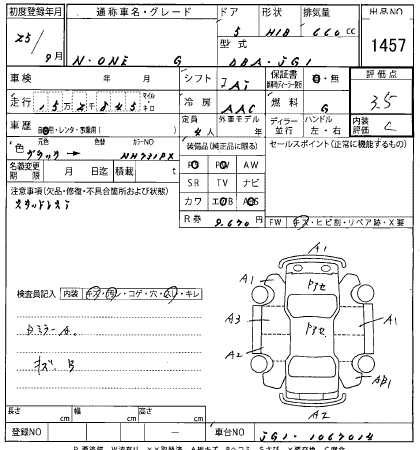 初度登録年月 通称車名・グレード ドア 形状 排気量 出品NO
25/9月 N-ONE G 5 HIB 660 cc 1457
型式 DBA-JG1
車検 年 月 シフト IAT 保証書 有・無 評価点
走行 152845 マイル キロ 冷房 AAC 燃料 G 3.5
車歴 自家用・レンタ・事業用( ) 定員 4人 外車モデル年 ディーラー 並行 ハンドル 左・右 内装評価 C
色 元色 ブラック 色替 カラーNO NH731PX
装備品(純正品に限る) セールスポイント(正常に機能するもの)
名義変更期限 月 日迄 積載 t
PS PW AW
SR TV ナビ
カワ エアB ABS
R券 9,670円
注意事項(欠品・修復・不具合箇所および状態)
スタッドレスT
FW キズ・ヒビ割・リペア跡・X要
検査員記入 内装 キズ・汚レ・コゲ・穴・スレ・キレ
DミラーA
キズB
A1
A1 Pアセ
A3 Pアセ A1
A2
AB1
A2
長さ cm 幅 cm 高さ cm
登録NO 車台NO JG1-1067014